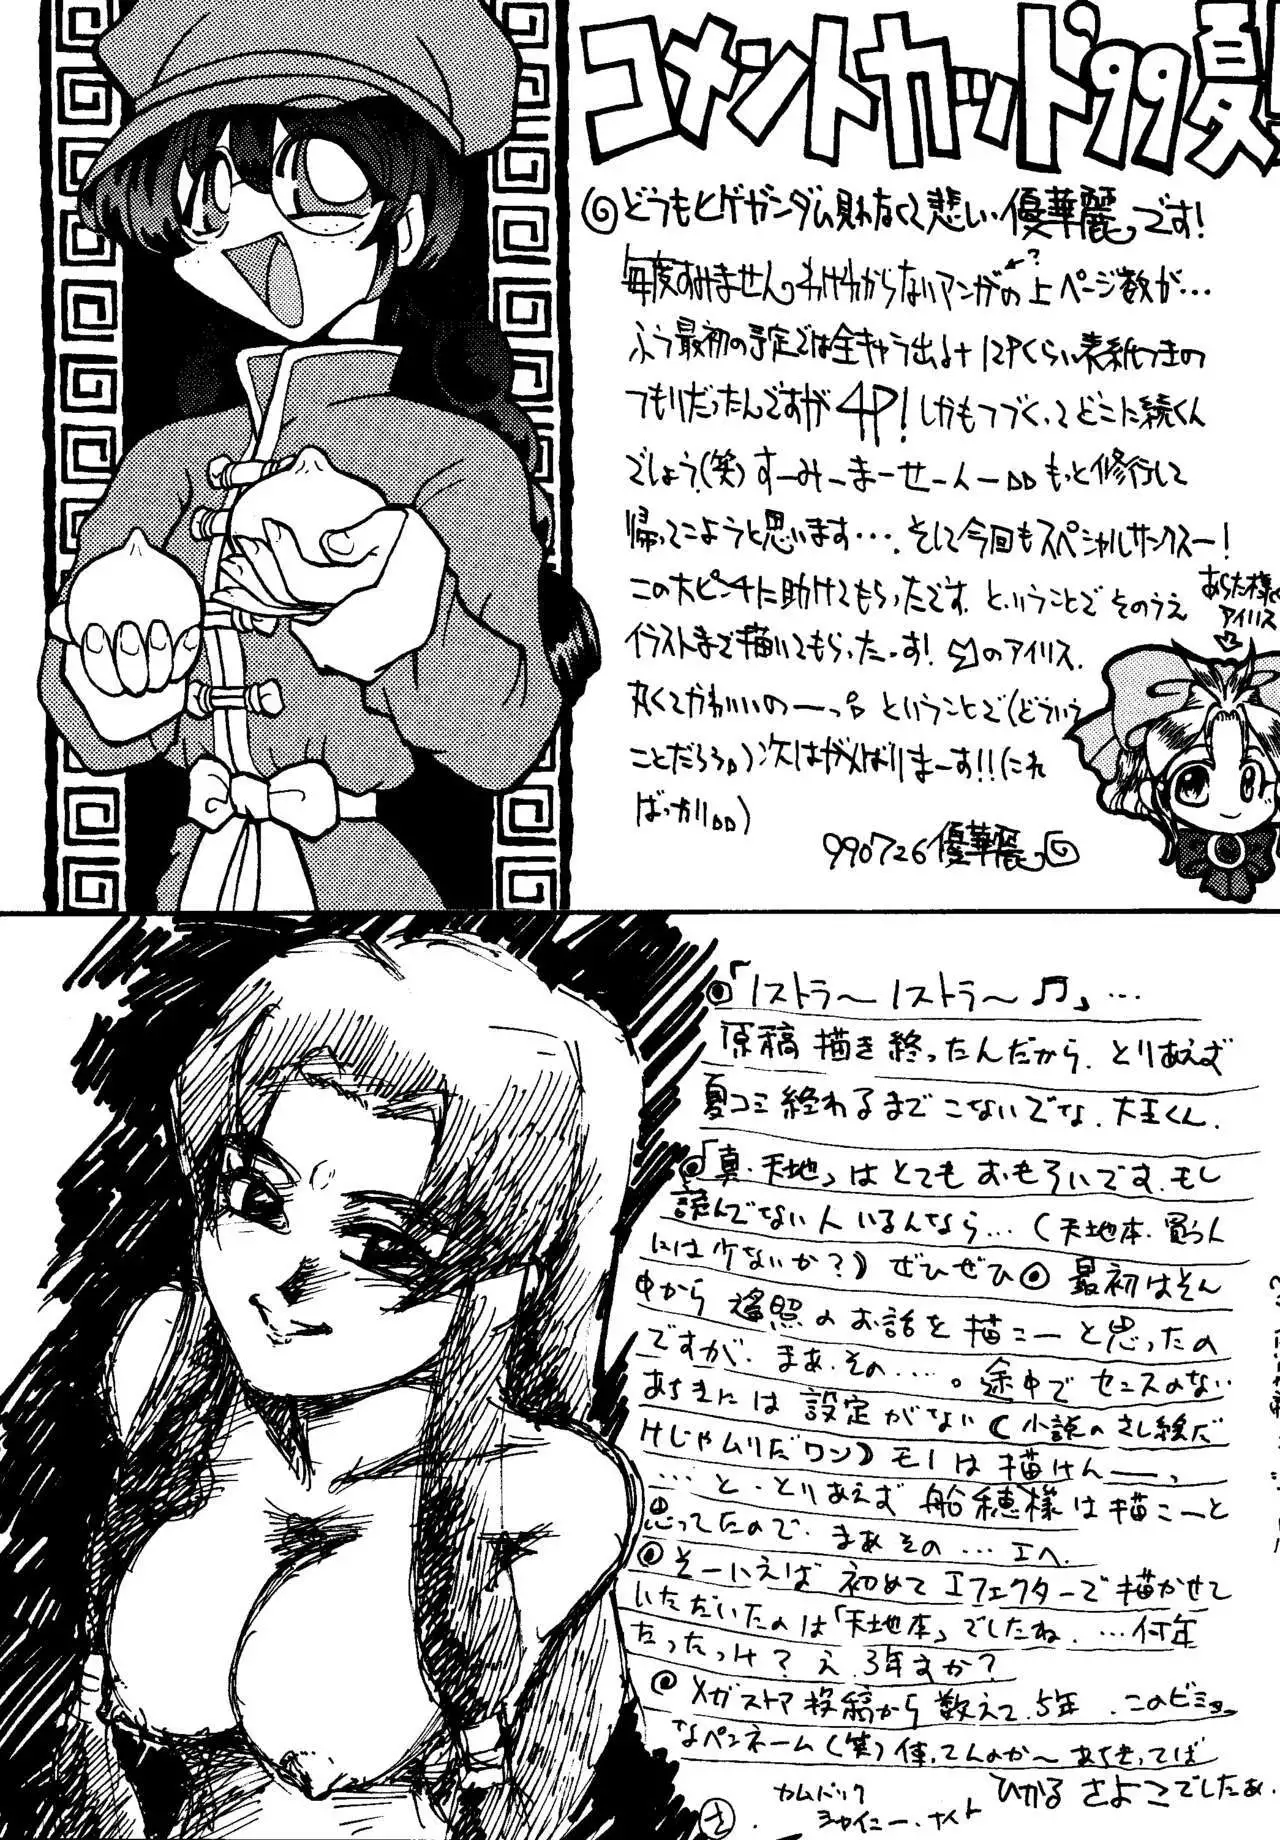 コメントカット'99夏!
どうもヒゲガンダム見れなくて悲しい優華麗っです!
毎度すみませんっわけわからないマンガの上ページ数が…
?
ふう最初の予定では全キャラ出る+12Pくらい表紙つきの
つもりだったんですが4P!しかもつづくってどこに続くん
でしょう(笑)すーみーまーせーんー もっと修行して
帰ってこようと思います….そして今回もスペシャルサンクスー!
この大ピンチに助けてもらったです.ということで そのうえ
イラストまで描いてもらったっす! のアイリス.
丸くてかわいいのーっ ということで(どういう
ことだろう)次はがんばりまーす!!(これ
ばっかり)
990726 優華麗っ
あらた様
アイリス
「ノストラ〜ノストラ〜♬」…
原稿描き終ったんだから、とりあえず
夏コミ終わるまでこないでな、大王くん.
「真・天地」はとてもおもろいです.もし
読んでない人いるんなら…(天地本.買う人
には少ないか?)ぜひぜひ 最初はそん
中から遙照のお話を描こーと思ったの
ですが.まあ.その….。途中でセンスのない
あちきには設定がない(小説のさし絵だ
けじゃムリだワン)モノは描けんーっ
…と.とりあえず船穂様は描こーと
思ってたので.まあその…エヘ.
そーいえば初めてエフェクターで描かせて
いただいたのは「天地本」でしたね.…何年
たったっけ?え.3年まか?
メガストア投稿から数えて.5年.このビミョー
なペンネーム(笑)使ってんのか〜あちきってば
カムバック
シャイニー・ナイト
ひかる さよこでしたぁ.
さ